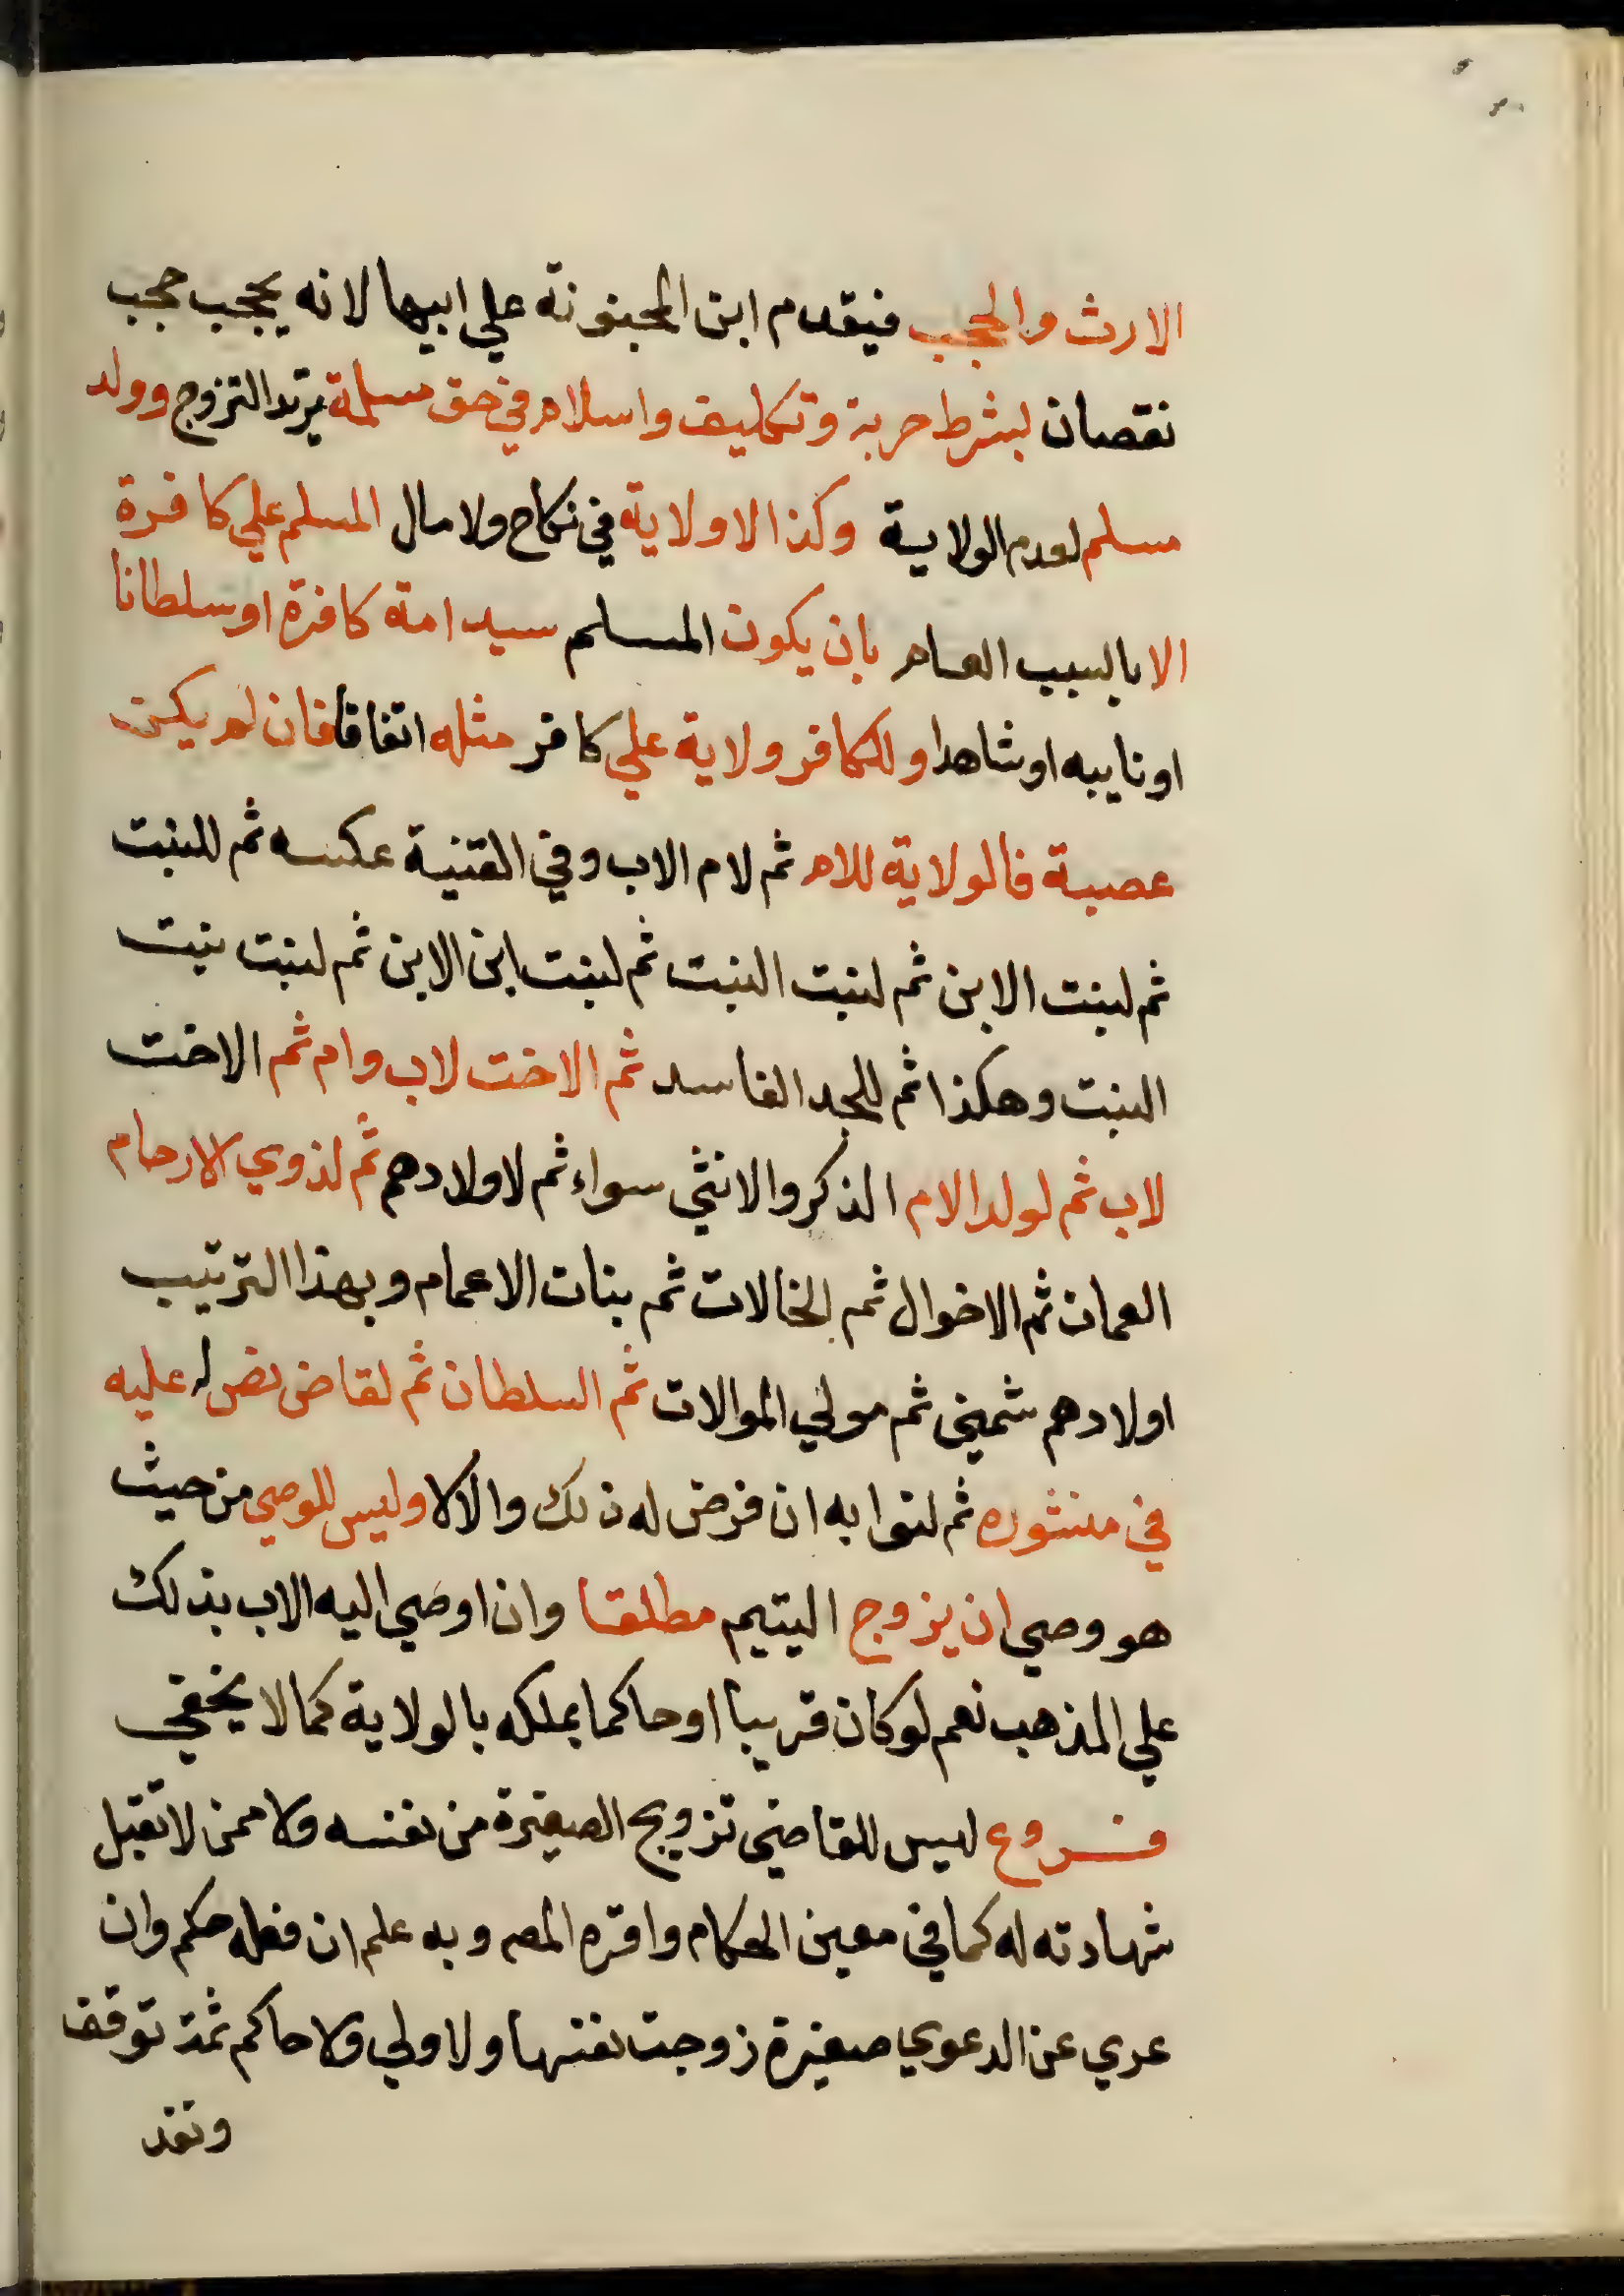 الارث والحجب فيقدم ابن المجنونة علي ابيها لانه يحجب حجب
نقصان بشرط حرية وتكليف واسلام في حق مسلمة تريد التزوج وولد
مسلم لعدم الولاية وكذا لا ولاية في نكاح ولا مال المسلم علي كافرة
الا بالسبب العام بان يكون المسلم سيد امة كافرة او سلطانا
او نايبه او شاهدا وللكافر ولاية علي كافر مثله اتفاقا فان لم يكن
عصبة فالولاية للام ثم لام الاب وفي القنية عكسه ثم للبنت
ثم لبنت الابن ثم لبنت البنت ثم لبنت ابن الابن ثم لبنت بنت
البنت وهكذا ثم للجد الفاسد ثم الاخت لاب وام ثم الاخت
لاب ثم لولد الام الذكر والانثي سواء ثم لاولادهم ثم لذوي الارحام
العمات ثم الاخوال ثم الخالات ثم بنات الاعمام وبهذا الترتيب
اولادهم شمني ثم مولي الموالات ثم السلطان ثم لقاض نص له عليه
في منشوره ثم لنوابه ان فرض له ذلك والا لا وليس للوصي من حيث
هو وصي ان يزوج اليتيم مطلقا وان اوصي اليه الاب بذلك
علي المذهب نعم لو كان قريبا او حاكما يملكه بالولاية كما لا يخفي
فروع ليس للقاضي تزويج الصغيرة من نفسه ولا ممن لا تقبل
شهادته له كما في معين الحكام واقره المصـ وبه علم ان فعله حكم وان
عري عن الدعوي صغيرة زوجت نفسها ولا ولي ولا حاكم ثمة توقف
ونفذ